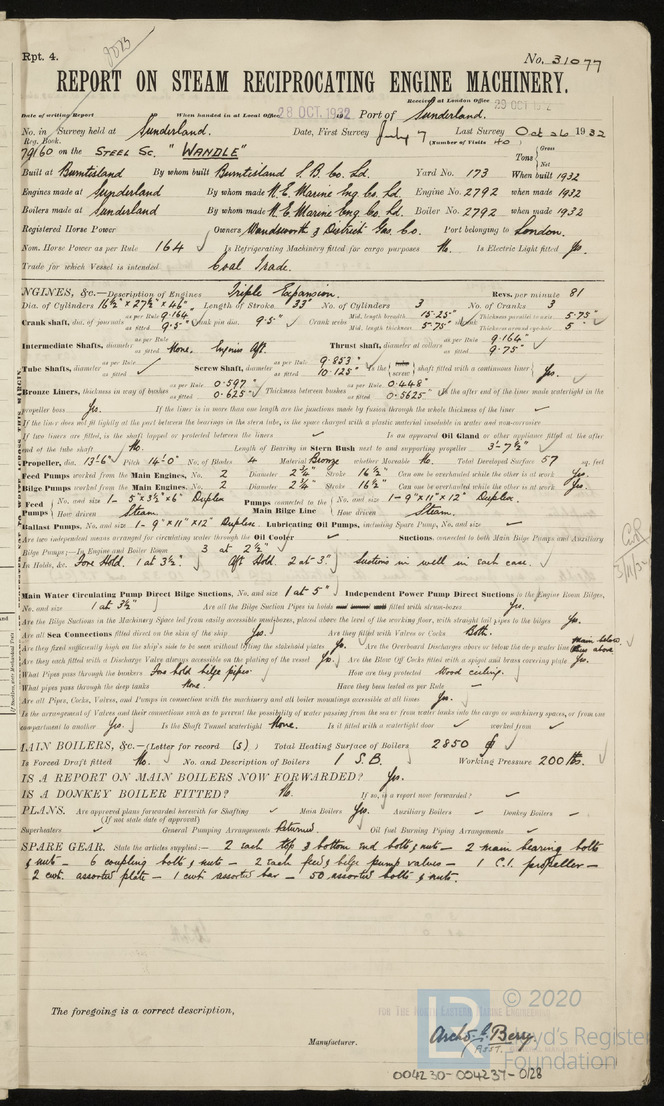 Rpt. 4. No. 31077
REPORT ON STEAM RECIPROCATING ENGINE MACHINERY.
Received at London Office
Date of writing Report When handed in at Local Office 28 OCT. 1932 Port of Sunderland.
No. in Survey held at Sunderland. Date, First Survey July 7 Last Survey Oct 26 1932
Reg. Book. (Number of Visits 40)
79160 on the STEEL Sc. "WANDLE" Tons Gross Net
Built at Burntisland By whom built Burntisland S.B. Co. Ld. Yard No. 173 When built 1932
Engines made at Sunderland By whom made N.E. Marine Eng. Co. Ld. Engine No. 2792 when made 1932
Boilers made at Sunderland By whom made N.E. Marine Eng. Co. Ld. Boiler No. 2792 when made 1932
Registered Horse Power Owners Wandsworth & District Gas Co. Port belonging to London.
Nom. Horse Power as per Rule 164 Is Refrigerating Machinery fitted for cargo purposes No. Is Electric Light fitted Yes.
Trade for which Vessel is intended Coal Trade.
NGINES, &c.—Description of Engines Triple Expansion. Revs. per minute 81
Dia. of Cylinders 16½" × 27½" × 46" Length of Stroke 33" No. of Cylinders 3 No. of Cranks 3
Crank shaft, dia. of journals as per Rule 9.164" as fitted 9.5" Crank pin dia. 9.5" Crank webs Mid. length breadth 15.25" Mid. length thickness 5.75" Thickness parallel to axis 5.75" Thickness around eye-hole 5"
Intermediate Shafts, diameter as per Rule as fitted None. Engines Aft. Thrust shaft, diameter at collars as per Rule 9.164" as fitted 9.75"
Tube Shafts, diameter as per Rule as fitted Screw Shaft, diameter as per Rule 9.853" as fitted 10.125" Is the screw shaft fitted with a continuous liner Yes.
Bronze Liners, thickness in way of bushes as per Rule 0.597" as fitted 0.625" Thickness between bushes as per Rule 0.448" as fitted 0.5625" Is the after end of the liner made watertight in the
propeller boss Yes. If the liner is in more than one length are the junctions made by fusion through the whole thickness of the liner
If the liner does not fit tightly at the part between the bearings in the stern tube, is the space charged with a plastic material insoluble in water and non-corrosive
If two liners are fitted, is the shaft lapped or protected between the liners Is an approved Oil Gland or other appliance fitted at the after
end of the tube shaft No. Length of Bearing in Stern Bush next to and supporting propeller 3'-7½"
Propeller, dia. 13'-6" Pitch 14'-0" No. of Blades 4 Material Bronze whether Moveable No. Total Developed Surface 57 sq. feet
Feed Pumps worked from the Main Engines, No. 2 Diameter 2¾" Stroke 16½" Can one be overhauled while the other is at work Yes.
Bilge Pumps worked from the Main Engines, No. 2 Diameter 2¾" Stroke 16½" Can one be overhauled while the other is at work Yes.
Feed Pumps No. and size 1- 5"×3½"×6" Duplex Pumps connected to the Main Bilge Line No. and size 1-9"×11"×12" Duplex.
How driven Steam. How driven Steam.
Ballast Pumps, No. and size 1- 9"×11"×12" Duplex. Lubricating Oil Pumps, including Spare Pump, No. and size
Are two independent means arranged for circulating water through the Oil Cooler Suctions, connected to both Main Bilge Pumps and Auxiliary
Bilge Pumps;—In Engine and Boiler Room 3 at 2½"
In Holds, &c. Fore Hold. 1 at 3½". Aft Hold. 2 at 3". Suctions in well in each case.
Main Water Circulating Pump Direct Bilge Suctions, No. and size 1 at 5" Independent Power Pump Direct Suctions to the Engine Room Bilges,
No. and size 1 at 3½" Are all the Bilge Suction Pipes in holds fitted with strum-boxes Yes.
Are the Bilge Suctions in the Machinery Space led from easily accessible mudboxes, placed above the level of the working floor, with straight tail pipes to the bilges Yes.
Are all Sea Connections fitted direct on the skin of the ship Yes. Are they fitted with Valves or Cocks Both.
Are they fixed sufficiently high on the ship's side to be seen without lifting the stokehold plates Yes. Are the Overboard Discharges above or below the deep water line
Are they each fitted with a Discharge Valve always accessible on the plating of the vessel Yes. Are the Blow Off Cocks fitted with a spigot and brass covering plate Yes.
What Pipes pass through the bunkers Fore hold bilge pipes How are they protected Wood ceiling.
What pipes pass through the deep tanks None. Have they been tested as per Rule
Are all Pipes, Cocks, Valves, and Pumps in connection with the machinery and all boiler mountings accessible at all times Yes.
Is the arrangement of Valves and their connections such as to prevent the possibility of water passing from the sea or from water tanks into the cargo or machinery spaces, or from one
compartment to another Yes. Is the Shaft Tunnel watertight None. Is it fitted with a watertight door worked from
MAIN BOILERS, &c.—(Letter for record (S).) Total Heating Surface of Boilers 2850
Is Forced Draft fitted No. No. and Description of Boilers 1 S.B. Working Pressure 200 lbs.
IS A REPORT ON MAIN BOILERS NOW FORWARDED? Yes.
IS A DONKEY BOILER FITTED? No. If so, is a report now forwarded?
PLANS. Are approved plans forwarded herewith for Shafting Main Boilers Yes. Auxiliary Boilers Donkey Boilers
(If not state date of approval)
Superheaters General Pumping Arrangements Returned. Oil fuel Burning Piping Arrangements
SPARE GEAR. State the articles supplied:— 2 each top & bottom end bolts & nuts — 2 main bearing bolts
& nuts — 6 coupling bolts & nuts — 2 each feed & bilge pump valves — 1 C.I. propeller —
2 cwt. assorted plate — 1 cwt assorted bar — 50 assorted bolts & nuts.
The foregoing is a correct description,
Manufacturer.
© 2020
Lloyd's Register
Foundation
004230-004237-0128